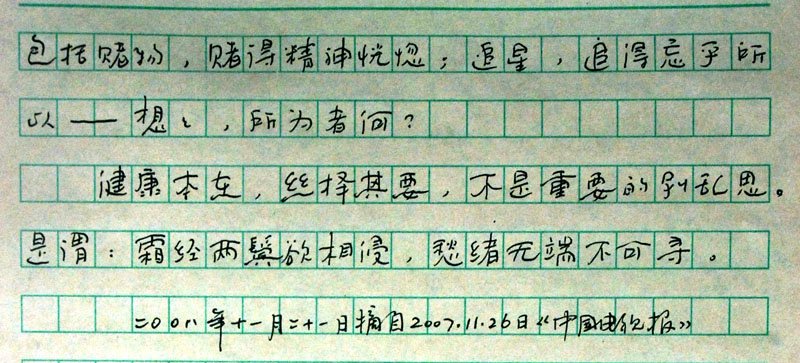 包括赌物，赌得精神恍惚；追星，追得忘乎所
以——想想，所为者何？
健康本在，丝择其要，不是重要的别乱思。
是谓：霜经两鬓欲相侵，愁绪无端不可寻。
二00八年十一月二十一日摘自2007.11.26日《中国电视报》